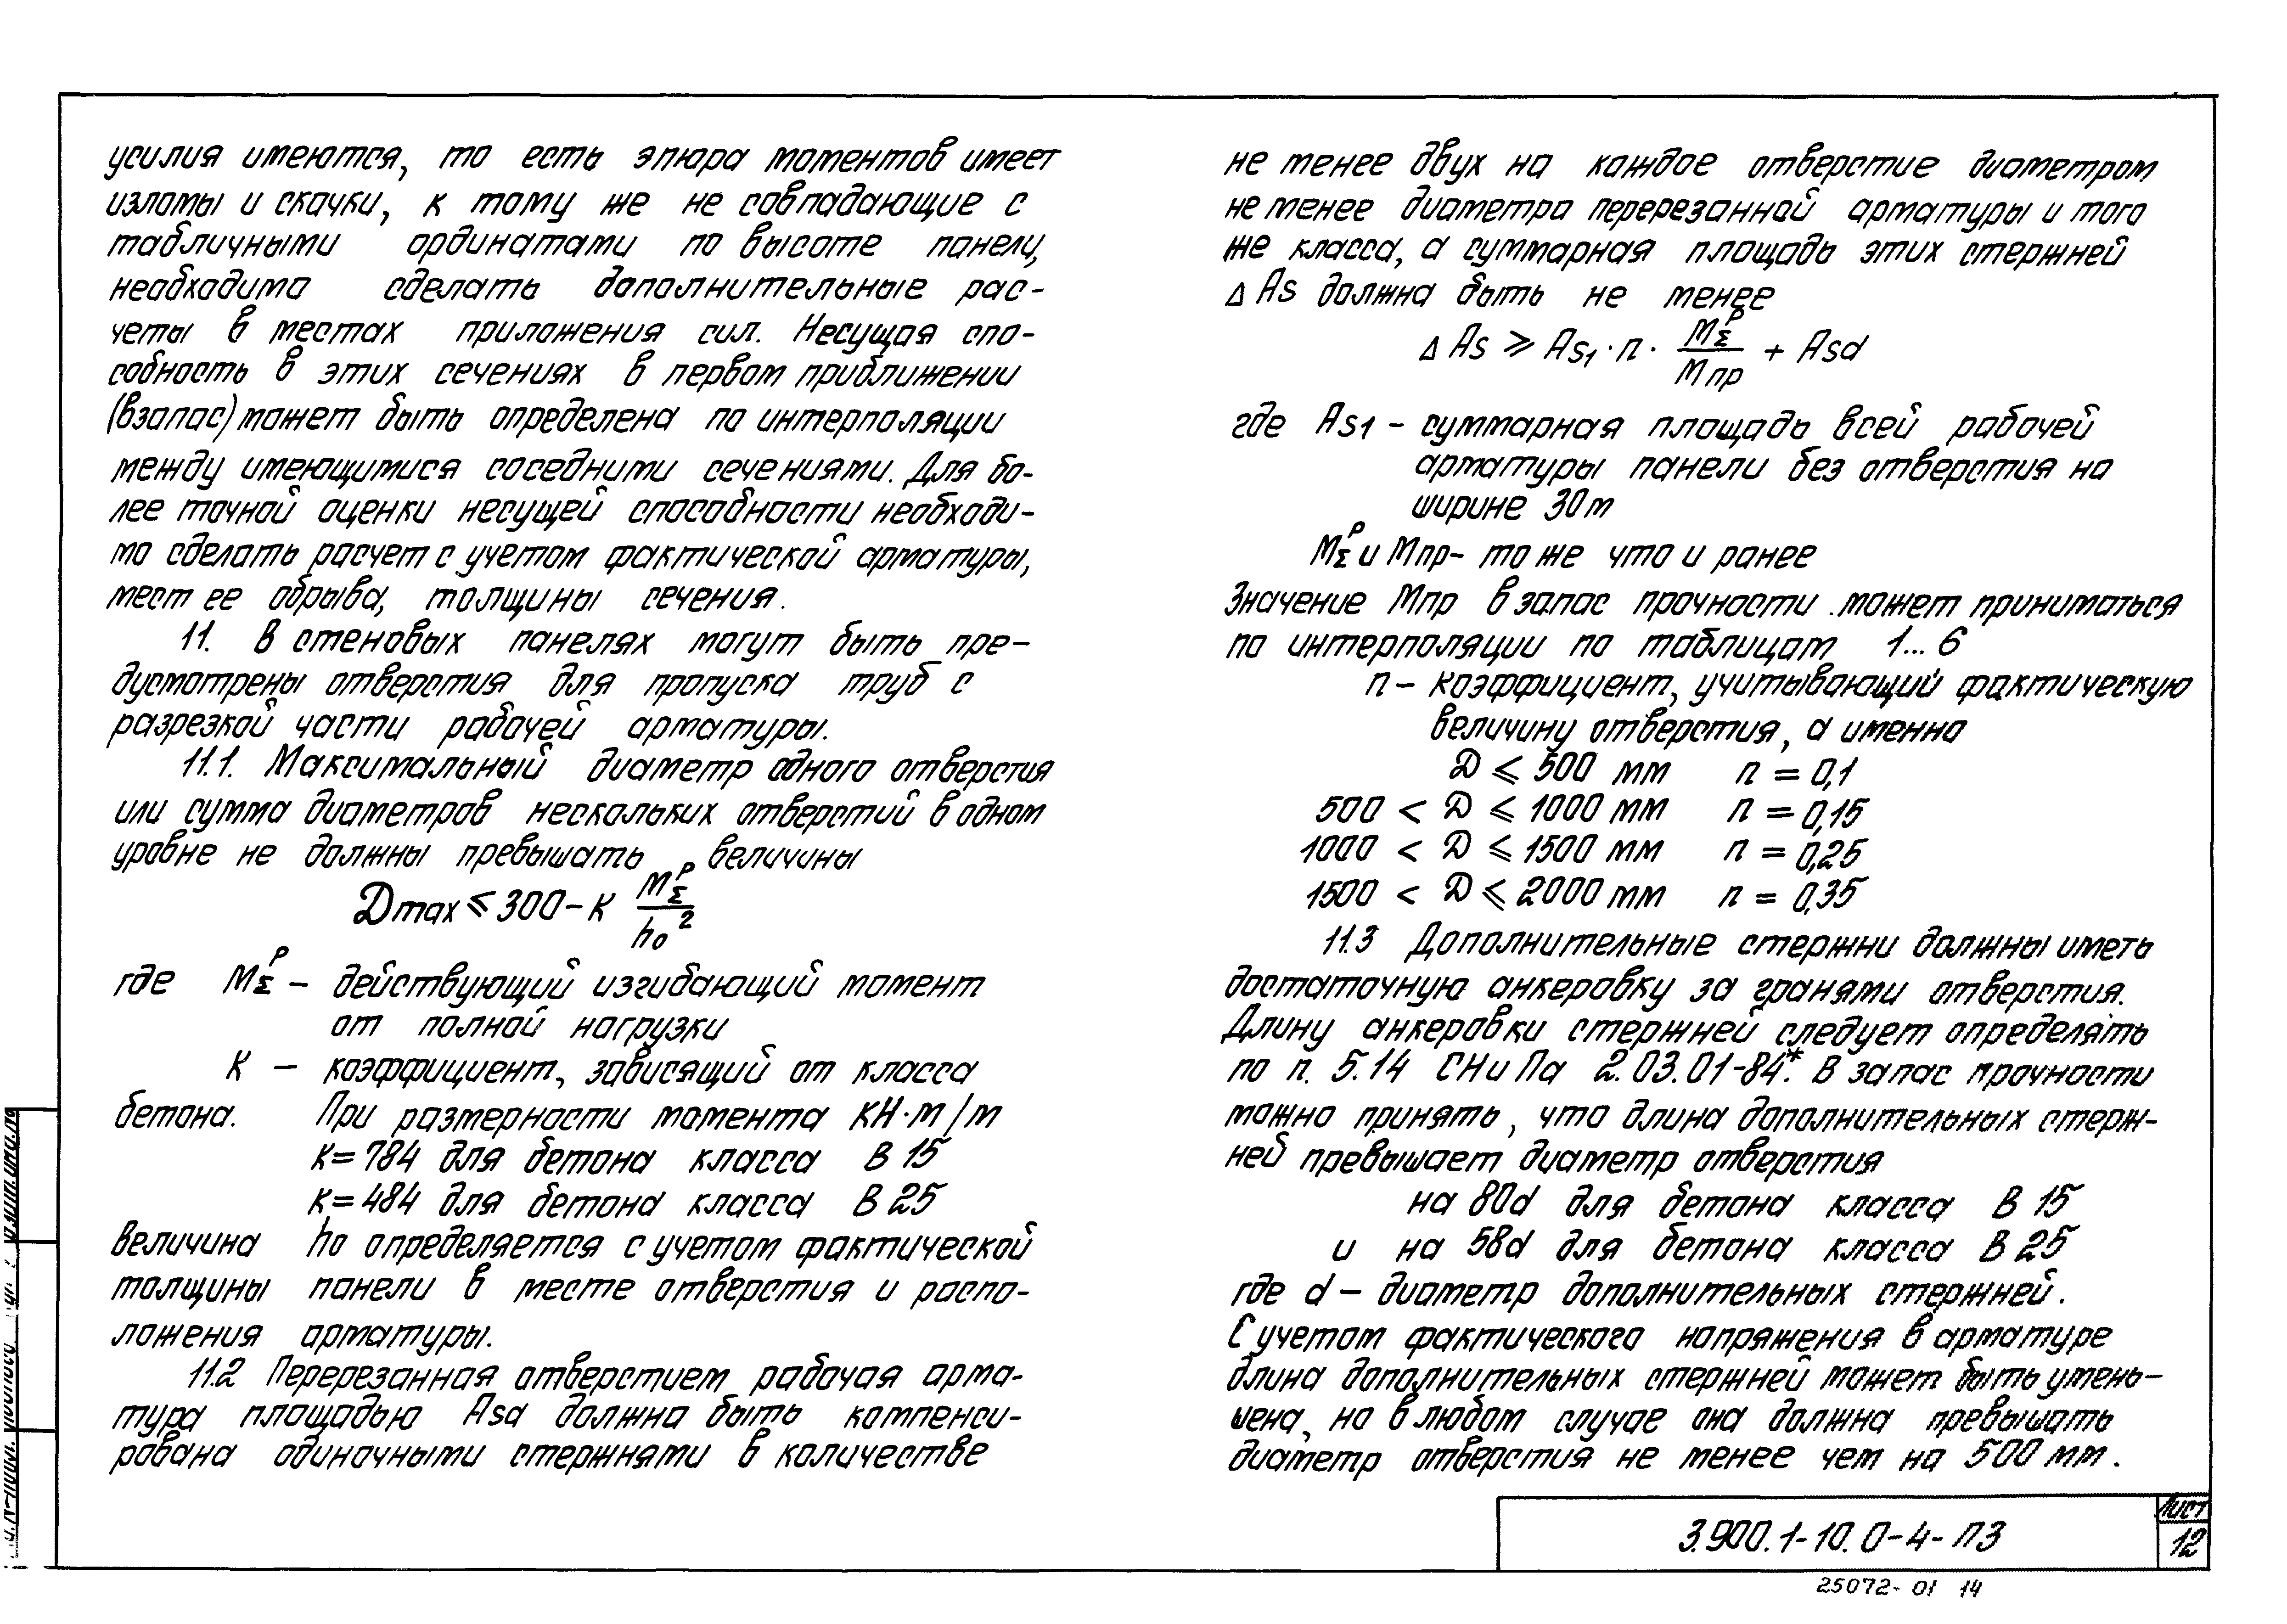 усилия имеются, то есть эпюра моментов имеет
изломы и скачки, к тому же не совпадающие с
табличными ординатами по высоте панели,
необходимо сделать дополнительные рас-
четы в местах приложения сил. Несущая спо-
собность в этих сечениях в первом приближении
(взапас) может быть определена по интерполяции
между имеющимися соседними сечениями. Для бо-
лее точной оценки несущей способности необходи-
мо сделать расчет с учетом фактической арматуры,
мест ее обрыва, толщины сечения.
11. В стеновых панелях могут быть пре-
дусмотрены отверстия для пропуска труб с
разрезкой части рабочей арматуры.
11.1. Максимальный диаметр одного отверстия
или сумма диаметров нескольких отверстий в одном
уровне не должны превышать величины
Dmax ≤ 300 - К MΣᵖ / h₀²
где MΣᵖ - действующий изгибающий момент
от полной нагрузки
К - коэффициент, зависящий от класса
бетона. При размерности момента кН·м/м
к = 784 для бетона класса В 15
к = 484 для бетона класса В 25
Величина h₀ определяется с учетом фактической
толщины панели в месте отверстия и распо-
ложения арматуры.
11.2 Перерезанная отверстием рабочая арма-
тура площадью Asd должна быть компенси-
рована одиночными стержнями в количестве
не менее двух на каждое отверстие диаметром
не менее диаметра перерезанной арматуры и того
же класса, а суммарная площадь этих стержней
Δ As должна быть не менее
Δ As ≥ As₁ · п · MΣᵖ / Мпр + Asd
где As₁ - суммарная площадь всей рабочей
арматуры панели без отверстия на
ширине 30м
MΣᵖ и Мпр - то же что и ранее
Значение Мпр в запас прочности может приниматься
по интерполяции по таблицам 1...6
п - коэффициент, учитывающий фактическую
величину отверстия, а именно
D ≤ 500 мм п = 0,1
500 < D ≤ 1000 мм п = 0,15
1000 < D ≤ 1500 мм п = 0,25
1500 < D ≤ 2000 мм п = 0,35
11.3 Дополнительные стержни должны иметь
достаточную анкеровку за гранями отверстия.
Длину анкеровки стержней следует определять
по п. 5.14 СНиПа 2.03.01-84*. В запас прочности
можно принять, что длина дополнительных стерж-
ней превышает диаметр отверстия
на 80d для бетона класса В 15
и на 58d для бетона класса В 25
где d - диаметр дополнительных стержней.
С учетом фактического напряжения в арматуре
длина дополнительных стержней может быть умень-
шена, но в любом случае она должна превышать
диаметр отверстия не менее чем на 500 мм.
3.900.1-10.0-4-ПЗ
Лист
12
25072-01 14